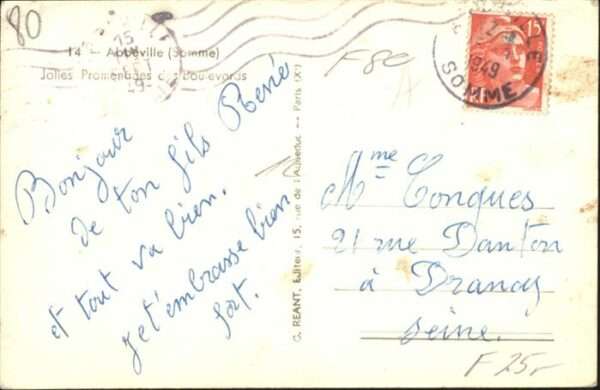 80
14 - Abbeville (Somme)
Jolies Promenades des Boulevards
F 80
15
1949
SOMME
Bonjour
de ton fils René
et tout va bien.
je t'embrasse bien
fort.
G. REANT, Editeur, 15, rue de l'Aqueduc — Paris (Xe)
Mme Tongues
21 rue Danton
à Drancy
Seine.
F 25